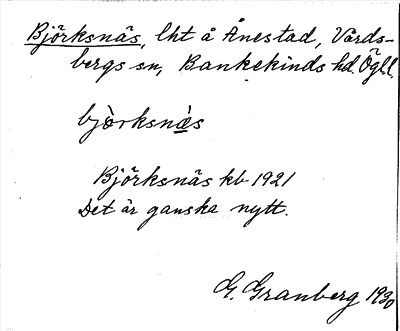 Björksnäs, lht å Ånestad, Vårds-
bergs sn, Bankekinds hd. Ögl.
bjòrksnä̀s
Björksnäs kb 1921
Det är ganska nytt.
G. Granberg 1930